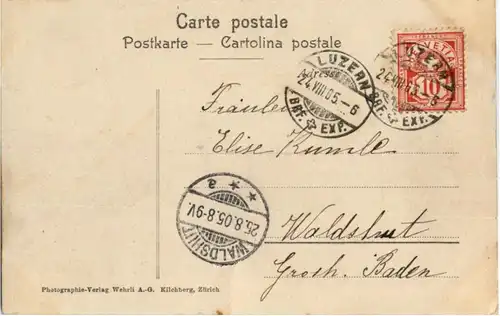 Carte postale
Postkarte — Cartolina postale
HELVETIA
10
LUZERN
24.VIII.05.–6
BRF. EXP.
LUZERN
24.VIII.05.–6
BRF. EXP.
Adresse
Fräulein
Elise Kumle
WALDSHUT
25.8.05.8-9V.
* * a
Waldshut
Grosh. Baden
Photographie-Verlag Wehrli A.-G. Kilchberg, Zürich